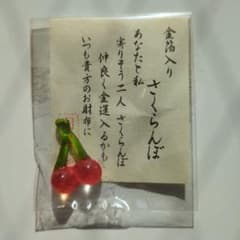 金箔入り
さくらんぼ
あなたと私
寄りそう二人 さくらんぼ
仲良く金運入るかも
いつも貴方のお財布に